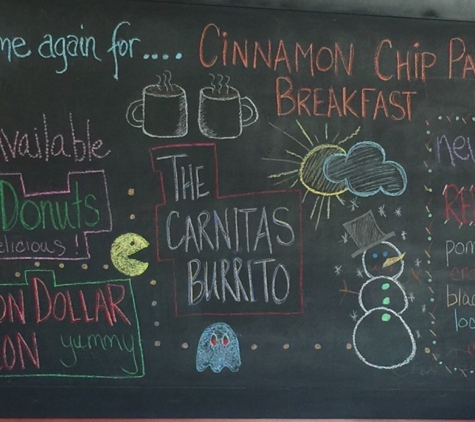 me again for.....
CINNAMON CHIP PA
BREAKFAST
available
Donuts
elicious!
ON DOLLAR
ON yummy
THE
CARNITAS
BURRITO
new
RE
pom
bla
lo